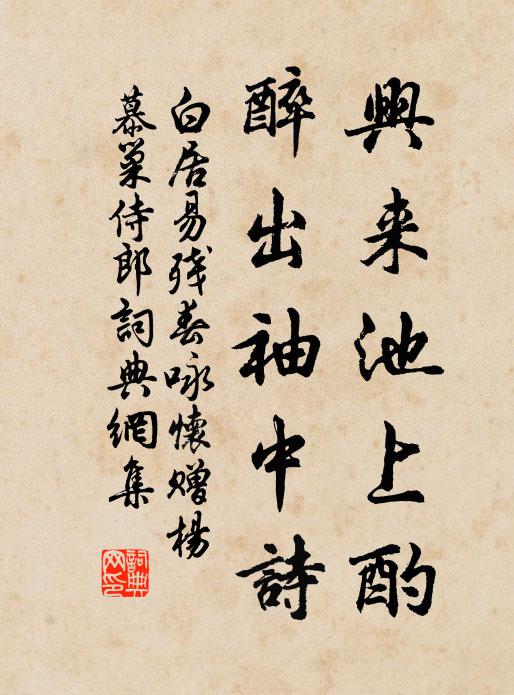 興来池上酌
醉出袖中詩
白居易残春咏懷赠楊
慕巢侍郎詞典網集
詞典
网印